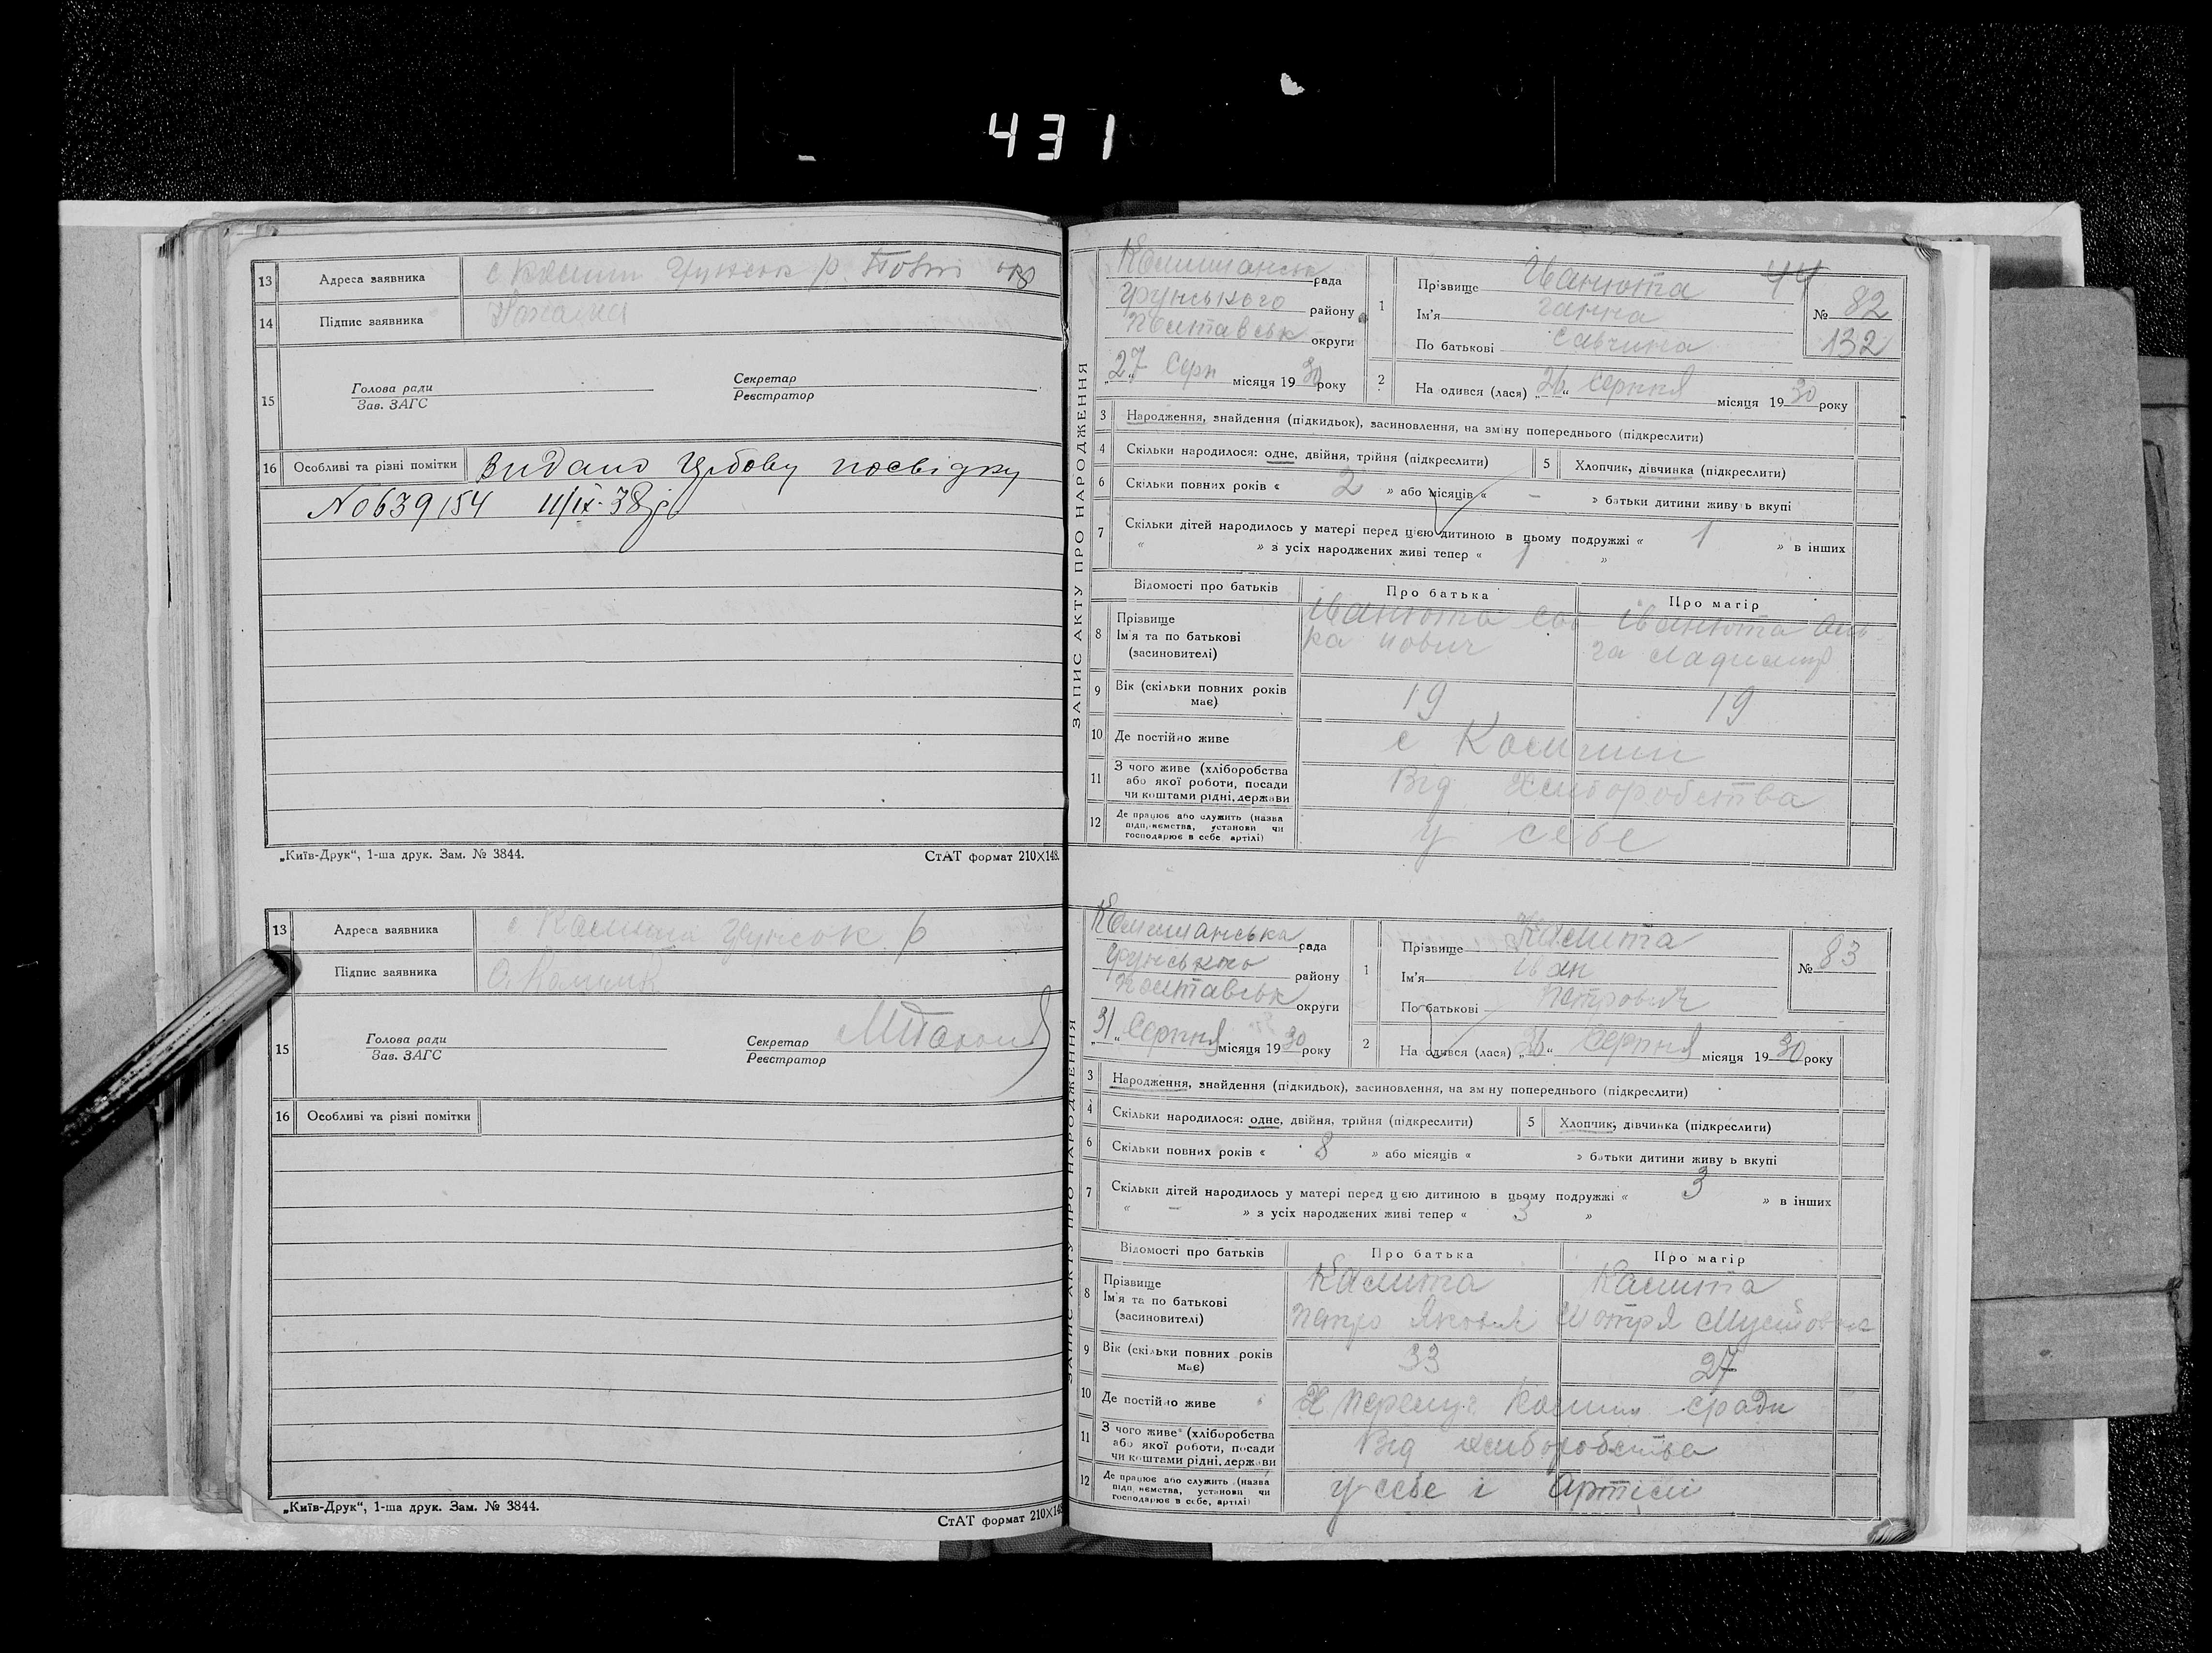 431
13 Адреса заявника с Комиши Грунськ р. Полт окр
14 Підпис заявника
15 Голова ради Секретар
Зав. ЗАГС Реєстратор
16 Особливі та різні помітки Видано нову посвідку
№ 0639154 11/IX-38р
„Київ-Друк“, 1-ша друк. Зам. № 3844. СтАТ формат 210×148.
13 Адреса заявника с. Комиші Грунськ р
14 Підпис заявника
15 Голова ради Секретар
Зав. ЗАГС Реєстратор
16 Особливі та різні помітки
„Київ-Друк“, 1-ша друк. Зам. № 3844. СтАТ формат 210×148
ЗАПИС АКТУ ПРО НАРОДЖЕННЯ
Комишанськ рада
Грунського району
Полтавськ округи
„27“ Серп місяця 1930 року
44
1 Прізвище Іванюта
Ім'я Ганна
По батькові Савична
№ 82
132
2 На одився (лася) „26“ Серпня місяця 1930 року
3 Народження, знайдення (підкидьок), засиновлення, на зміну попереднього (підкреслити)
4 Скільки народилося: одне, двійня, трійня (підкреслити) 5 Хлопчик, дівчинка (підкреслити)
6 Скільки повних років « 2 » або місяців « – » батьки дитини живуть вкупі
7 Скільки дітей народилось у матері перед цією дитиною в цьому подружжі « 1 » в інших
« » з усіх народжених живі тепер « 1 »
Відомості про батьків Про батька Про матір
8 Прізвище Іванюта Сав Іванюта Оль
Ім'я та по батькові
(засиновителі)
9 Вік (скільки повних років має) 19 19
10 Де постійно живе с Комиши
11 З чого живе (хліборобства Від хліборобства
або якої роботи, посади
чи коштами рідні, держави
12 Де працює або служить (назва у себе
підприємства, установи чи
господарює в себе артілі)
ЗАПИС АКТУ ПРО НАРОДЖЕННЯ
Комишанська рада
Грунського району
Полтавськ округи
„31“ Серпня місяця 1930 року
1 Прізвище Калита
Ім'я Іван
По батькові Петрович
№ 83
2 На одився (лася) „26“ Серпня місяця 1930 року
3 Народження, знайдення (підкидьок), засиновлення, на зміну попереднього (підкреслити)
4 Скільки народилося: одне, двійня, трійня (підкреслити) 5 Хлопчик, дівчинка (підкреслити)
6 Скільки повних років « 8 » або місяців « » батьки дитини живуть вкупі
7 Скільки дітей народилось у матері перед цією дитиною в цьому подружжі « 3 » в інших
« – » з усіх народжених живі тепер « 3 »
Відомості про батьків Про батька Про матір
8 Прізвище Калита Калита
Ім'я та по батькові Петро Якович
(засиновителі)
9 Вік (скільки повних років має) 33 27
10 Де постійно живе Х Перелуг Комиш сради
11 З чого живе (хліборобства Від хліборобства
або якої роботи, посади
чи коштами рідні, держави
12 Де працює або служить (назва у себе і артілі
підприємства, установи чи
господарює в себе, артілі)